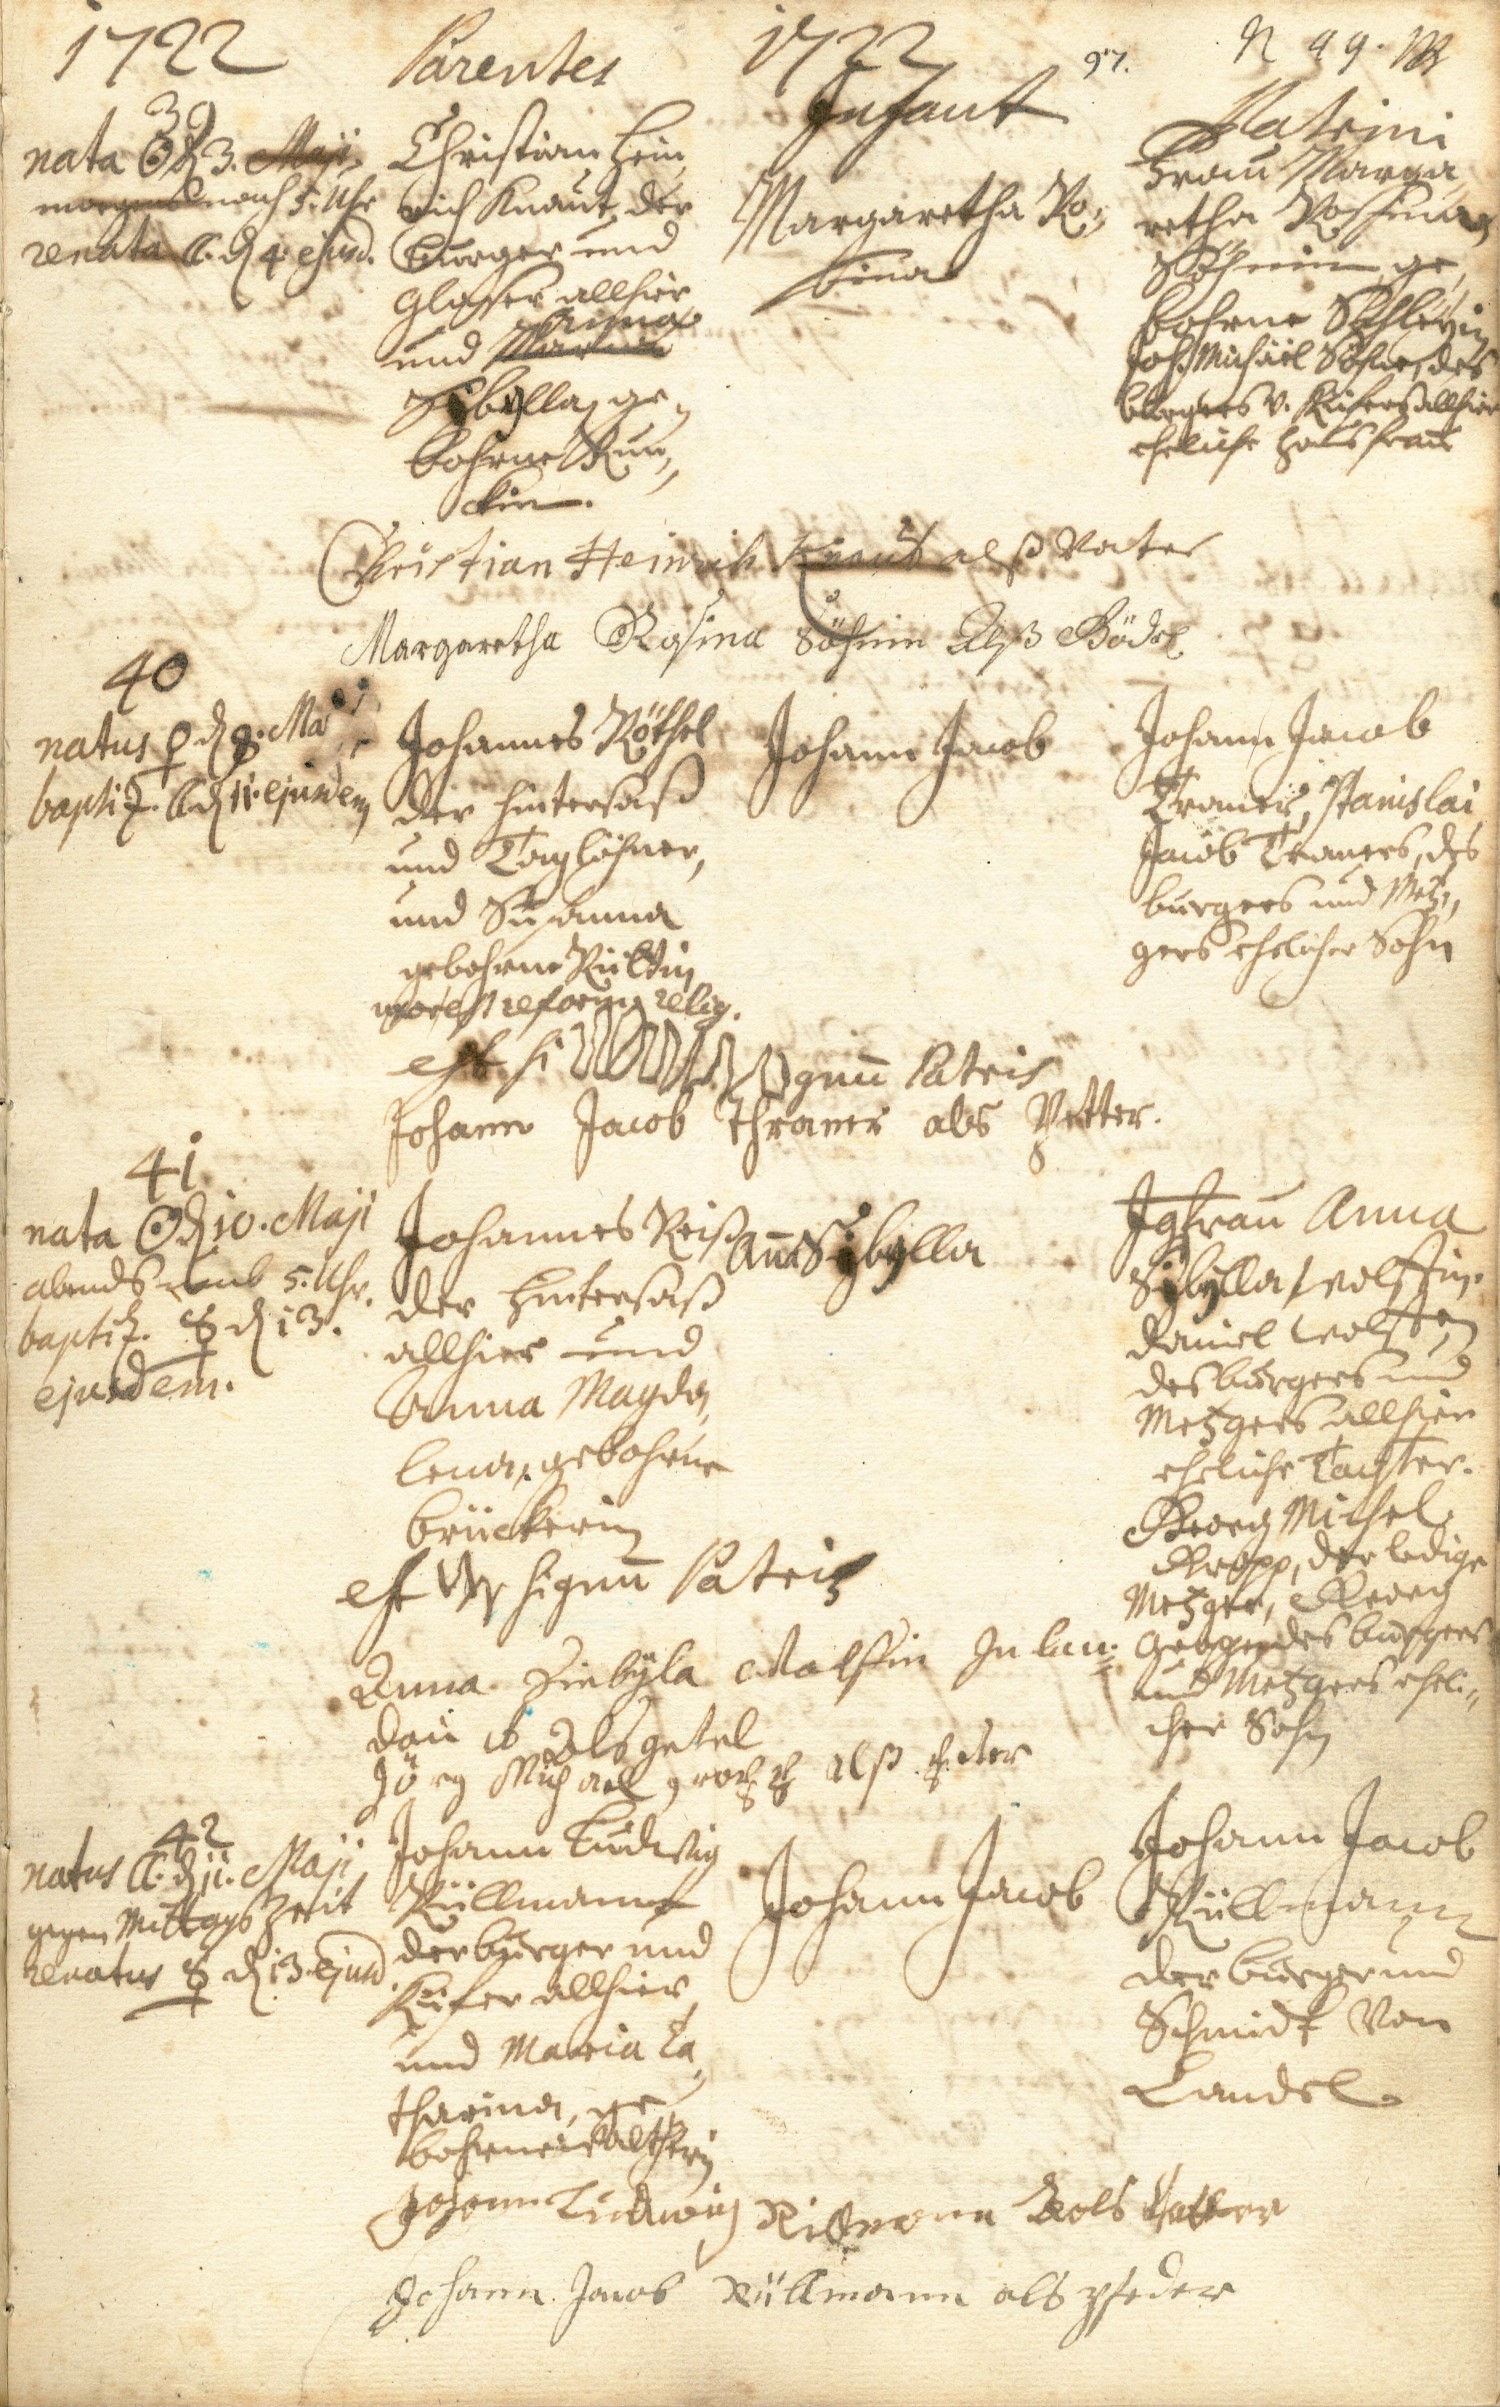 1722 Parentes 1722 97. N 49.
Infant Patrini
39
nata ☉ d 3. Maji
morgens nach 5. Uhr
renata ☾. d 4. ejusd.
Christian Hein,,
rich Knaut, der
burger und
Glaser allhier
und Maria Anna
Sibylla, ge,,
bohrne Run,,
ckin.
Margaretha Ro,,
sina
Frau Marga,,
retha Rosina
Söhnin ge,,
bohrne
Joh. Michäel Söhne, des
burgers v. Küfers allhier
eheliche haus frau
Christian Heinrich Knaut alß Vater
Margaretha Rosina Söhnin Alß Bödel
40
natus ♀ d 8. Maji
baptiz. ☾ d 11. ejusdem
Johannes Röthel
der hintersaß
und Taglöhner,
und Susanna
gebohrne
uxor est reform. relig.
Johann Jacob
Johann Jacob
Traner, Stanislai
Jacob Traners, des
burgers und Metz,,
gers ehelicher Sohn
est signū Patris
Johann Jacob Thraner als Petter.
41
nata ☉ d 10. Maji
abends umb 5. Uhr.
baptiz. ☿ d 13.
ejusdem.
Johannes Reiß
der Hintersaß
allhier und
Anna Magda,,
lena, gebohrne
brückerin
Anna Sibylla
Jgfrau Anna
Sibylla Wolffin
Daniel Wolffen
des burgers und
Metzgers allhier
eheliche Tochter.
Georg Michel
Gropp, der ledige
Metzger, Georg
Groppen des burgers
und Metzgers eheli,,
cher Sohn
est signū Patris
Anna Siebÿla Wolffin In lan,,
dau als getel
Jörg Michael gropp alß petter
42
natus ☾. d 11. Maji
gegen Mittags Zeit
renatus ☿ d 13. ejusd.
Johann Ludwig
Rüllmann
der burger und
Küfer allhier,
und Maria Ca,,
tharina, ge,,
bohrne Waltherin
Johann Jacob
Johann Jacob
Rüllmann
der burger und
Schmidt von
Candel.
Johann Ludwig als Vatter
Johann Jacob Rüllmann als pfeder